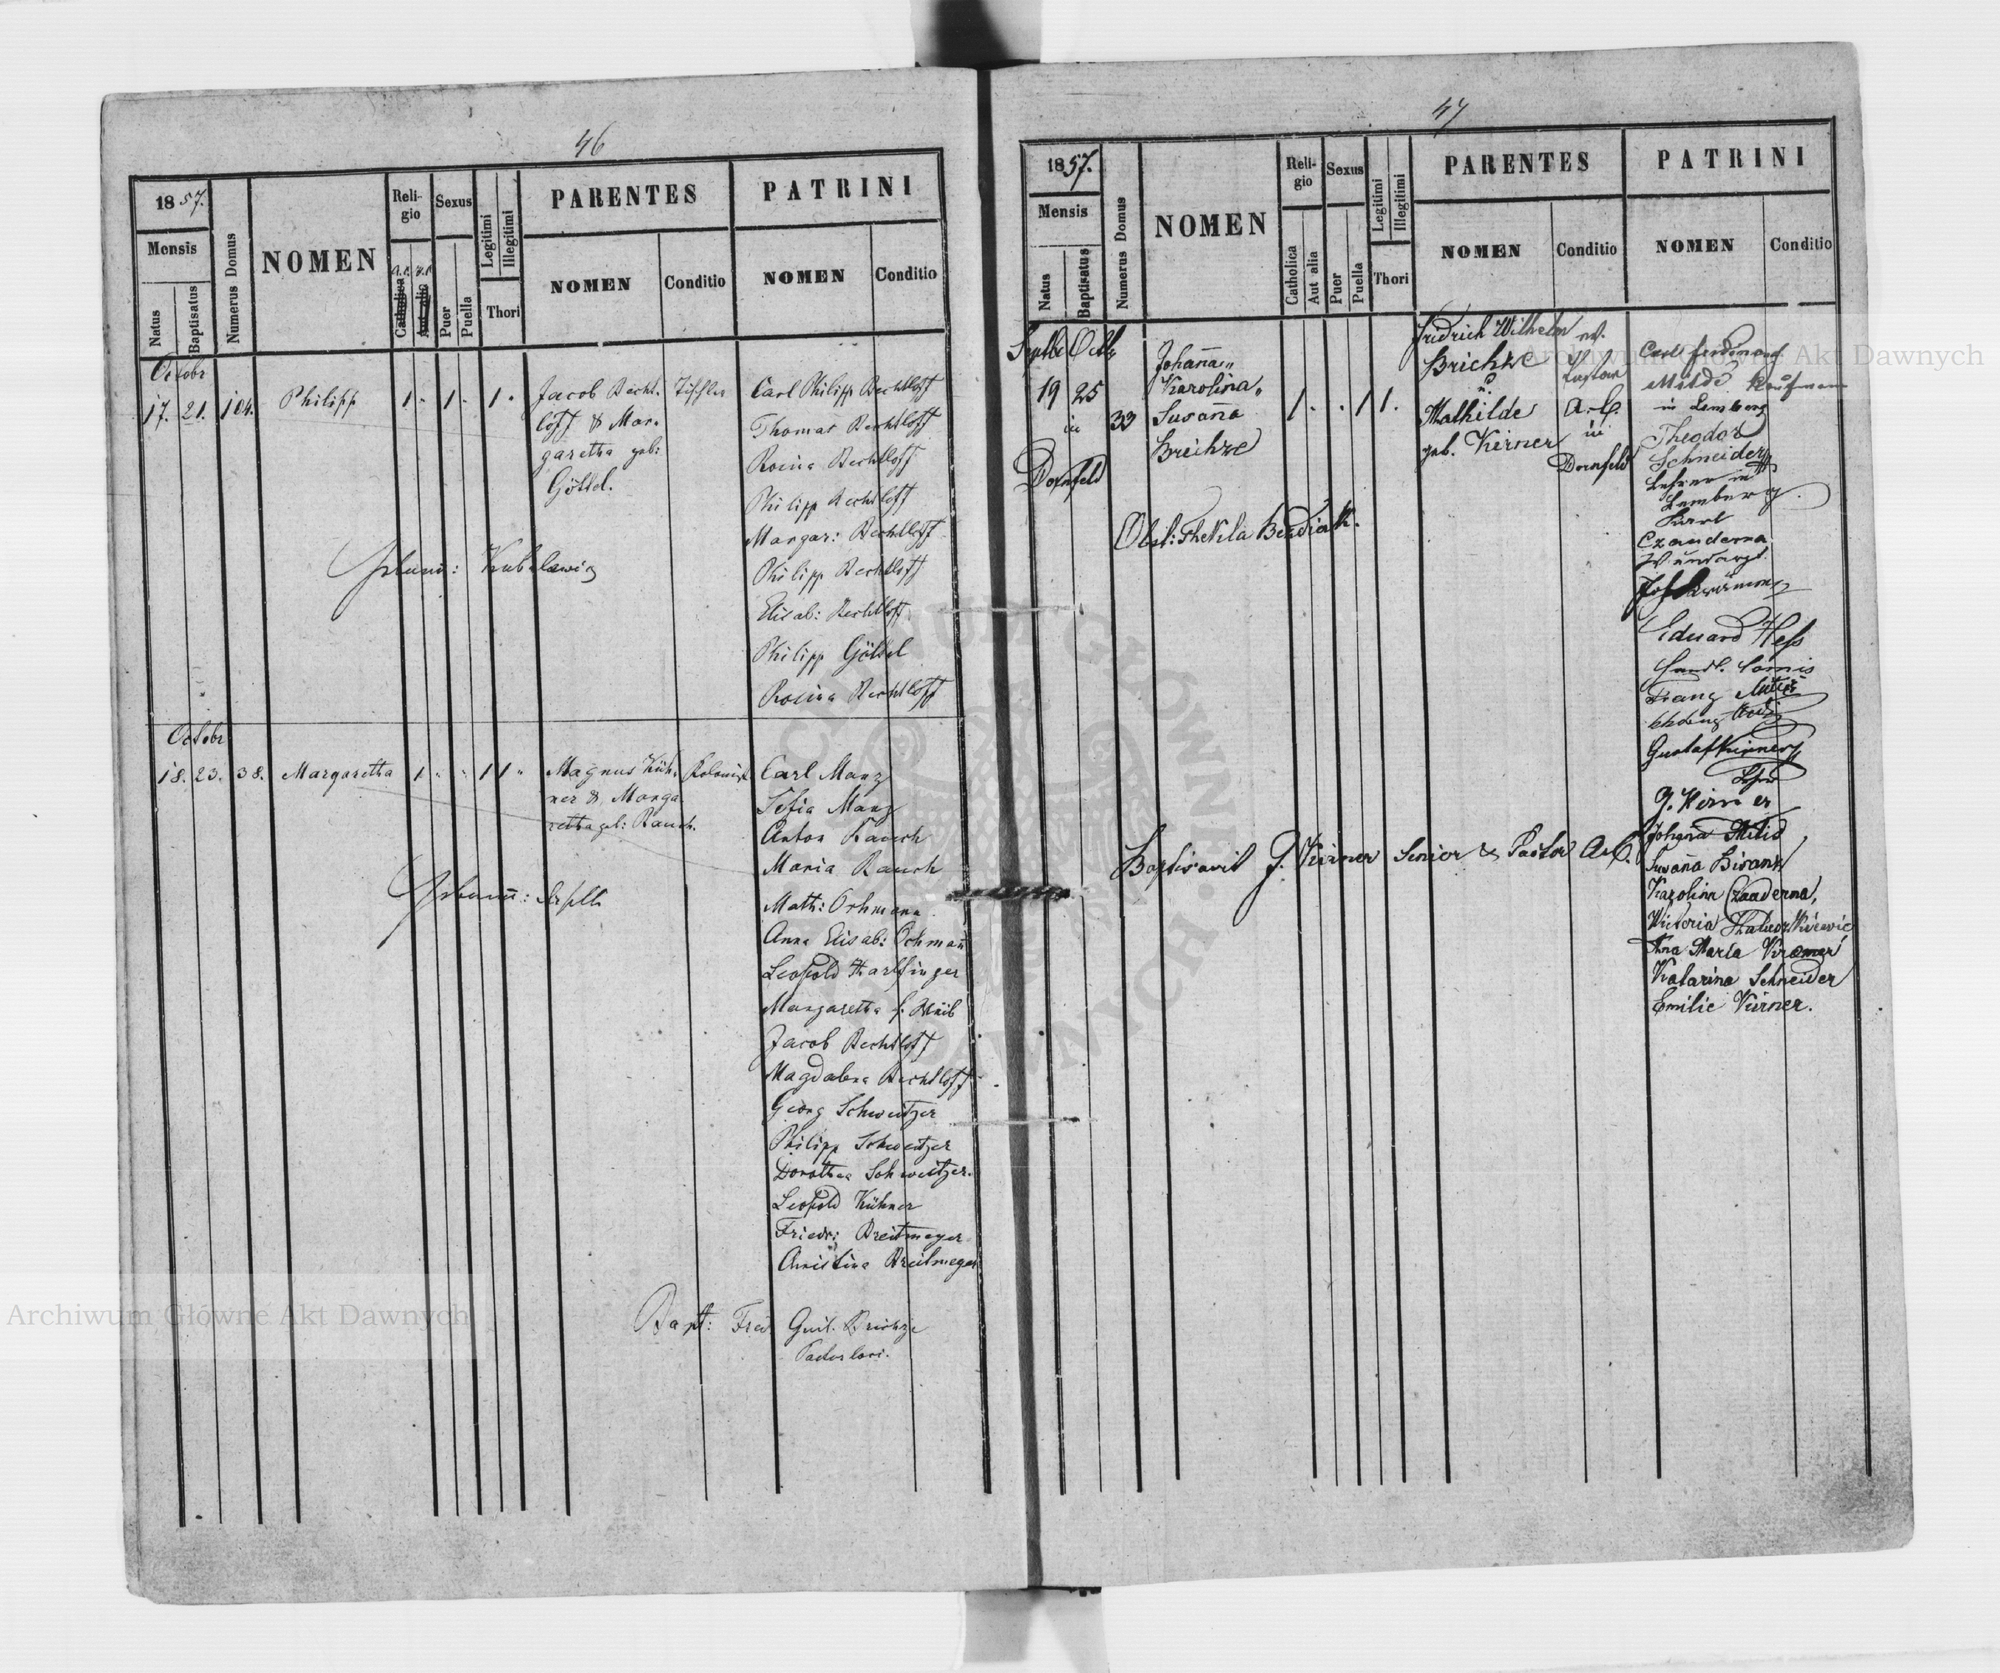 46
1857.
Mensis
Natus
Baptisatus
Numerus Domus
NOMEN
Reli-
gio
Catholica
Aut alia
Sexus
Puer
Puella
Legitimi
Illegitimi
Thori
PARENTES
NOMEN
Conditio
PATRINI
NOMEN
Conditio
Octobr
17. 21. 104. Philipp 1 . 1 . 1 .
Jacob Becht-
loff & Mar-
garetha geb:
Göttel.
Tischler
Carl Philipp Bechtloff
Thomas Bechtloff
Rosina Bechtloff
Philipp Bechtloff
Margar: Bechtloff
Philipp Bechtloff
Elisab: Bechtloff
Philipp Göttel
Rosina Bechtloff
Octobr
18. 23. 38. Margaretha 1 . . 1 1 "
Magnus Küh-
ner & Marga-
retha geb: Rauch.
Kolonist
Carl Manz
Sofia Manz
Anton Rauch
Maria Rauch
Math: Ochmann
Anna Elisab: Ochmañ
Leopold Harlfinger
Margaretha
Jacob Bechtloff
Magdalena Bechtloff
Georg Schweitzer
Philipp Schweitzer
Dorothea Schweitzer.
Leopold Kühner
Friedr: Breitmeyer
Christina Breitmeyer
Bapt: Fred Guil. Brichze
Pastor loci.
47
1857.
Mensis
Natus
Baptisatus
Numerus Domus
NOMEN
Reli-
gio
Catholica
Aut alia
Sexus
Puer
Puella
Legitimi
Illegitimi
Thori
PARENTES
NOMEN
Conditio
PATRINI
NOMEN
Conditio
Septbr Octb
19 25
in 33
Dornfeld
Johaña"
Karolina"
Susana
Brichze
1 . . 1 1 .
Fridrich Wilhelm
Brichze
u.
Mathilde
geb. Kirner
ev.
Pastor
A. C.
in
Dornfeld
Carl Ferdinand
Milde Kaufmann
in Lemberg
Theodor
Schneider
Lehrer in
Lemberg.
Karl
Czanderna
Wundarzt.
Eduard Hess
Handl. Comis
Franz
Gustaf Kirner
J. Kirner
Johana Milde
Susaña Bisanz
Karolina Czanderna,
Wictoria
Ana Maria
Katarina Schneider
Emilie Kirner.
Obst: Thekla
Baptisavit J. Kirner Senior & Pastor A. C.
Archiwum Główne Akt Dawnych
Archiwum Główne Akt Dawnych